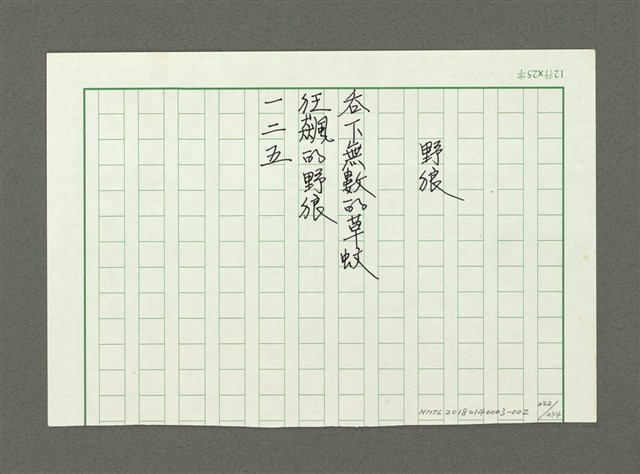 12行×25字
野狼
吞下無數的草蚊
狂飆的野狼
一二五
NMTL20180140003-002
222/234